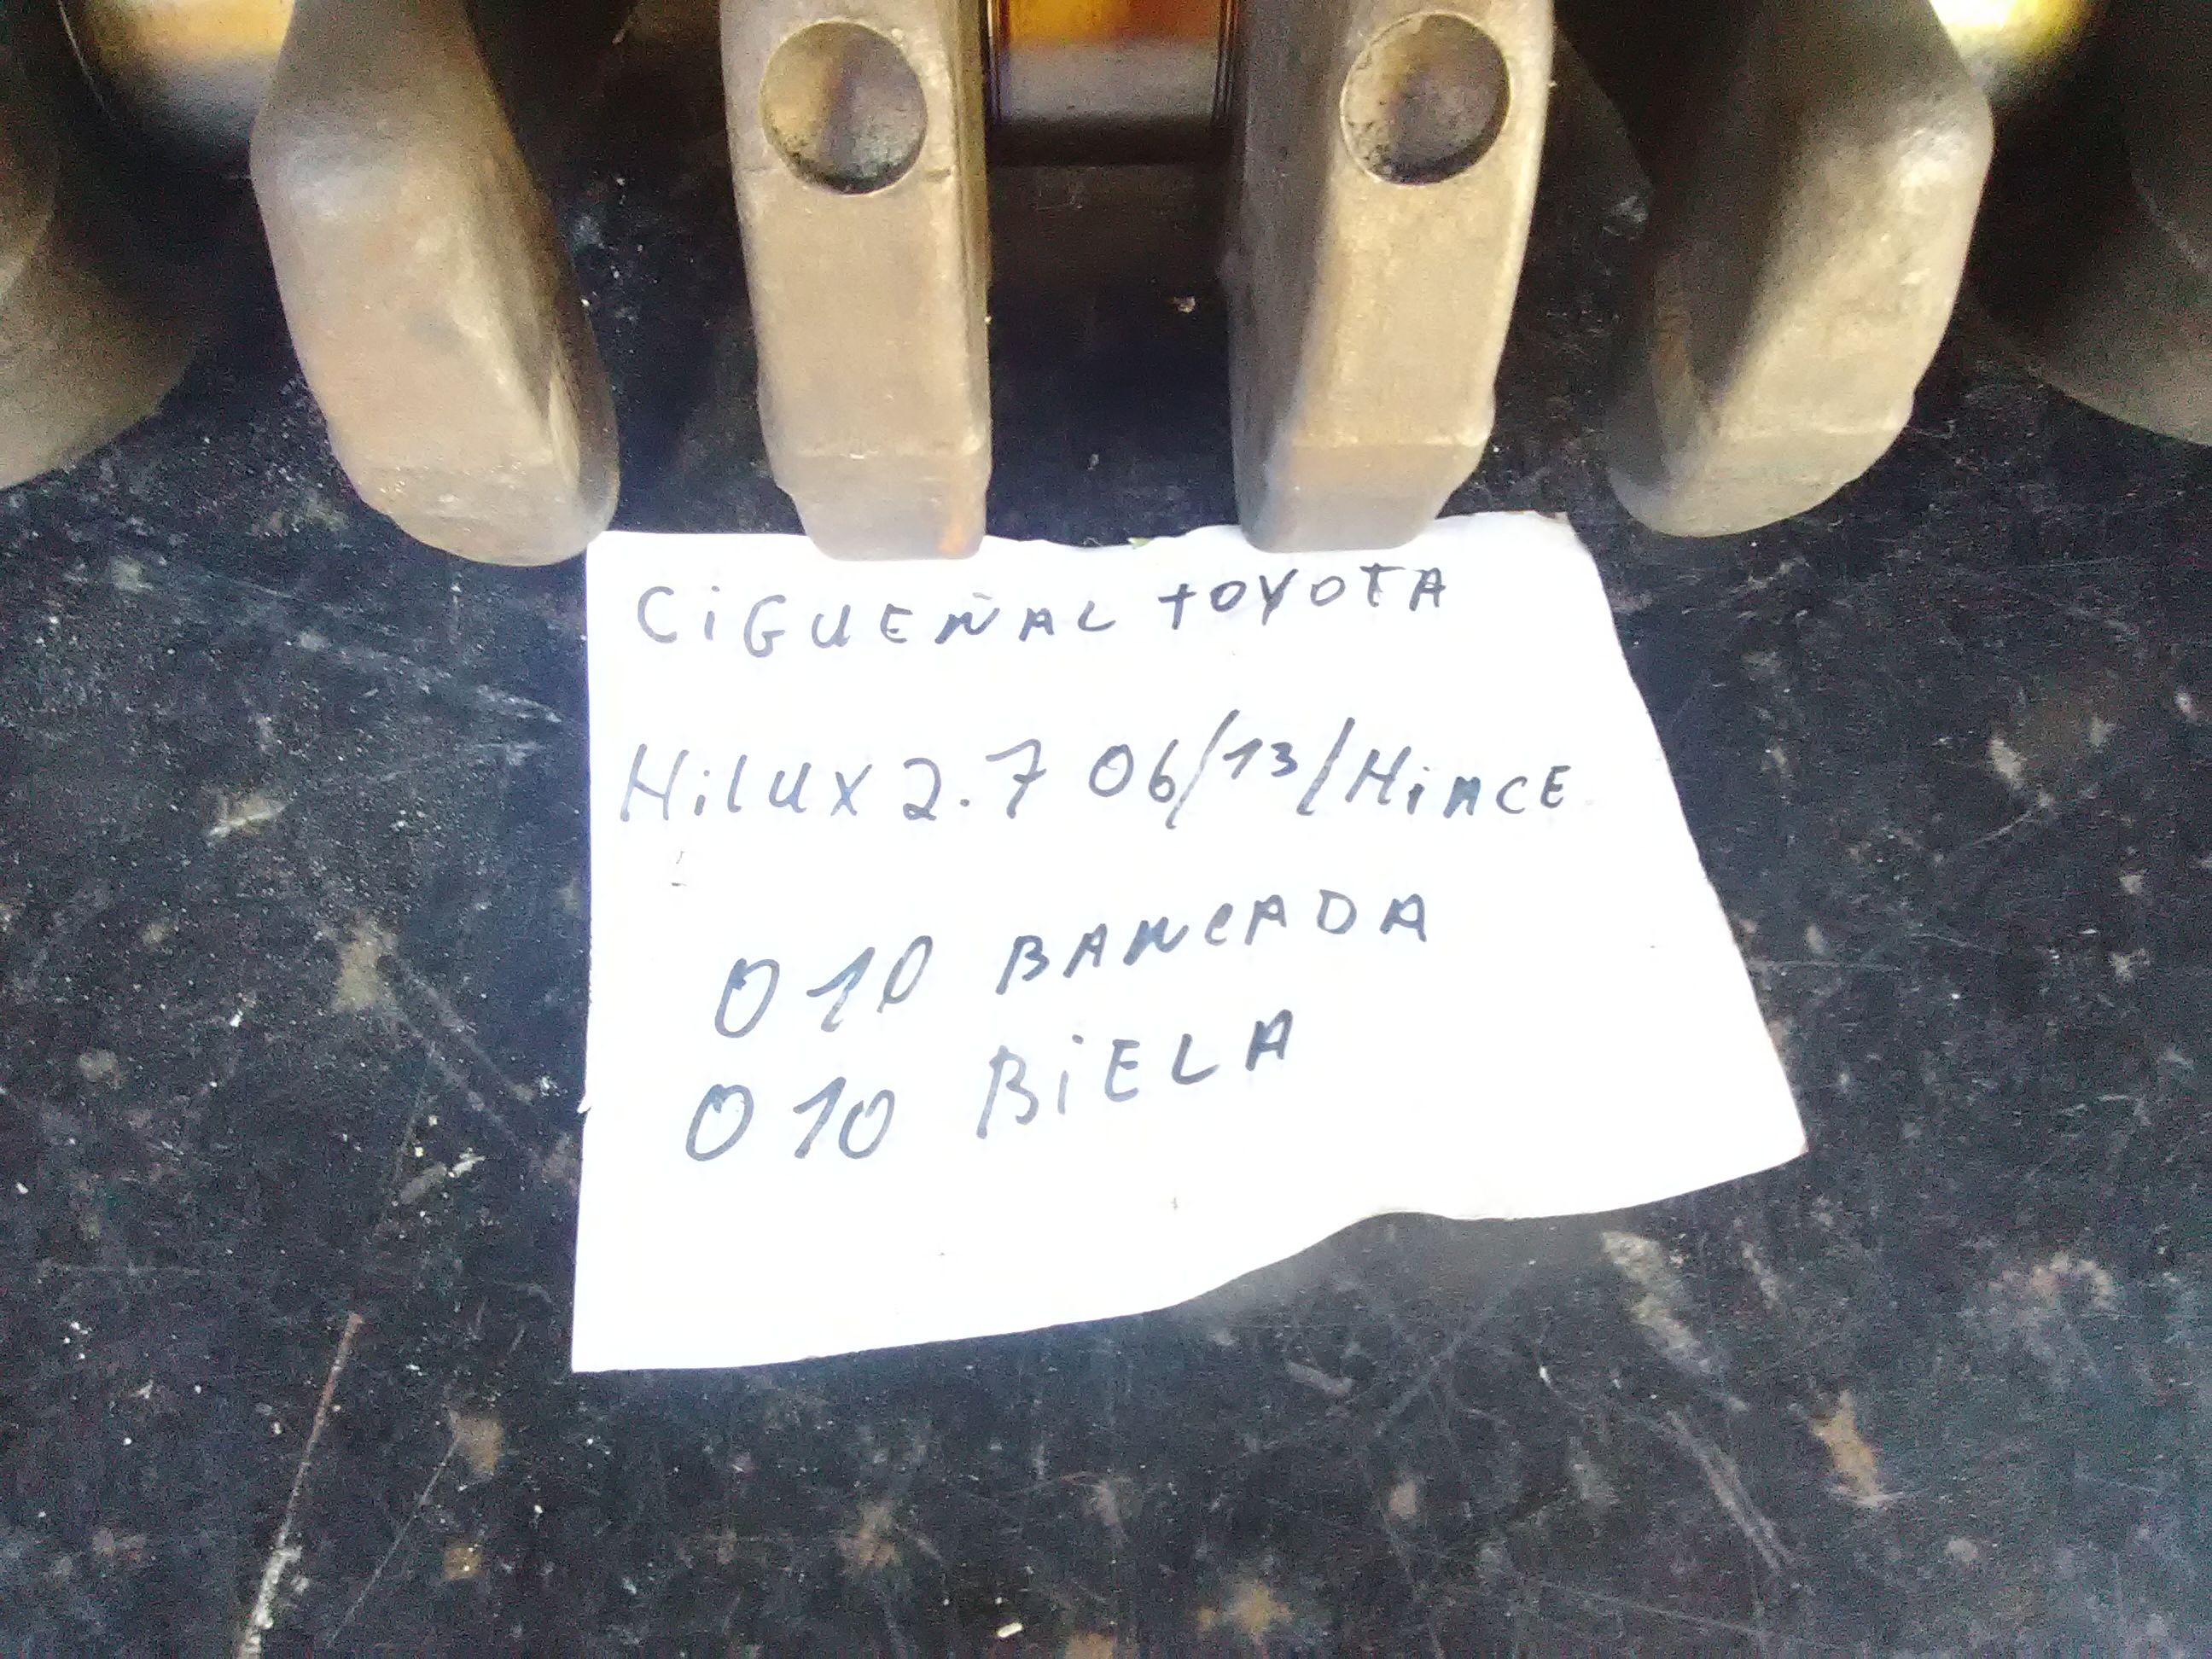 CiGUEÑAL tOYOTA
Hilux 2.7 06/13/HiACE
010 BANCADA
010 BiELA